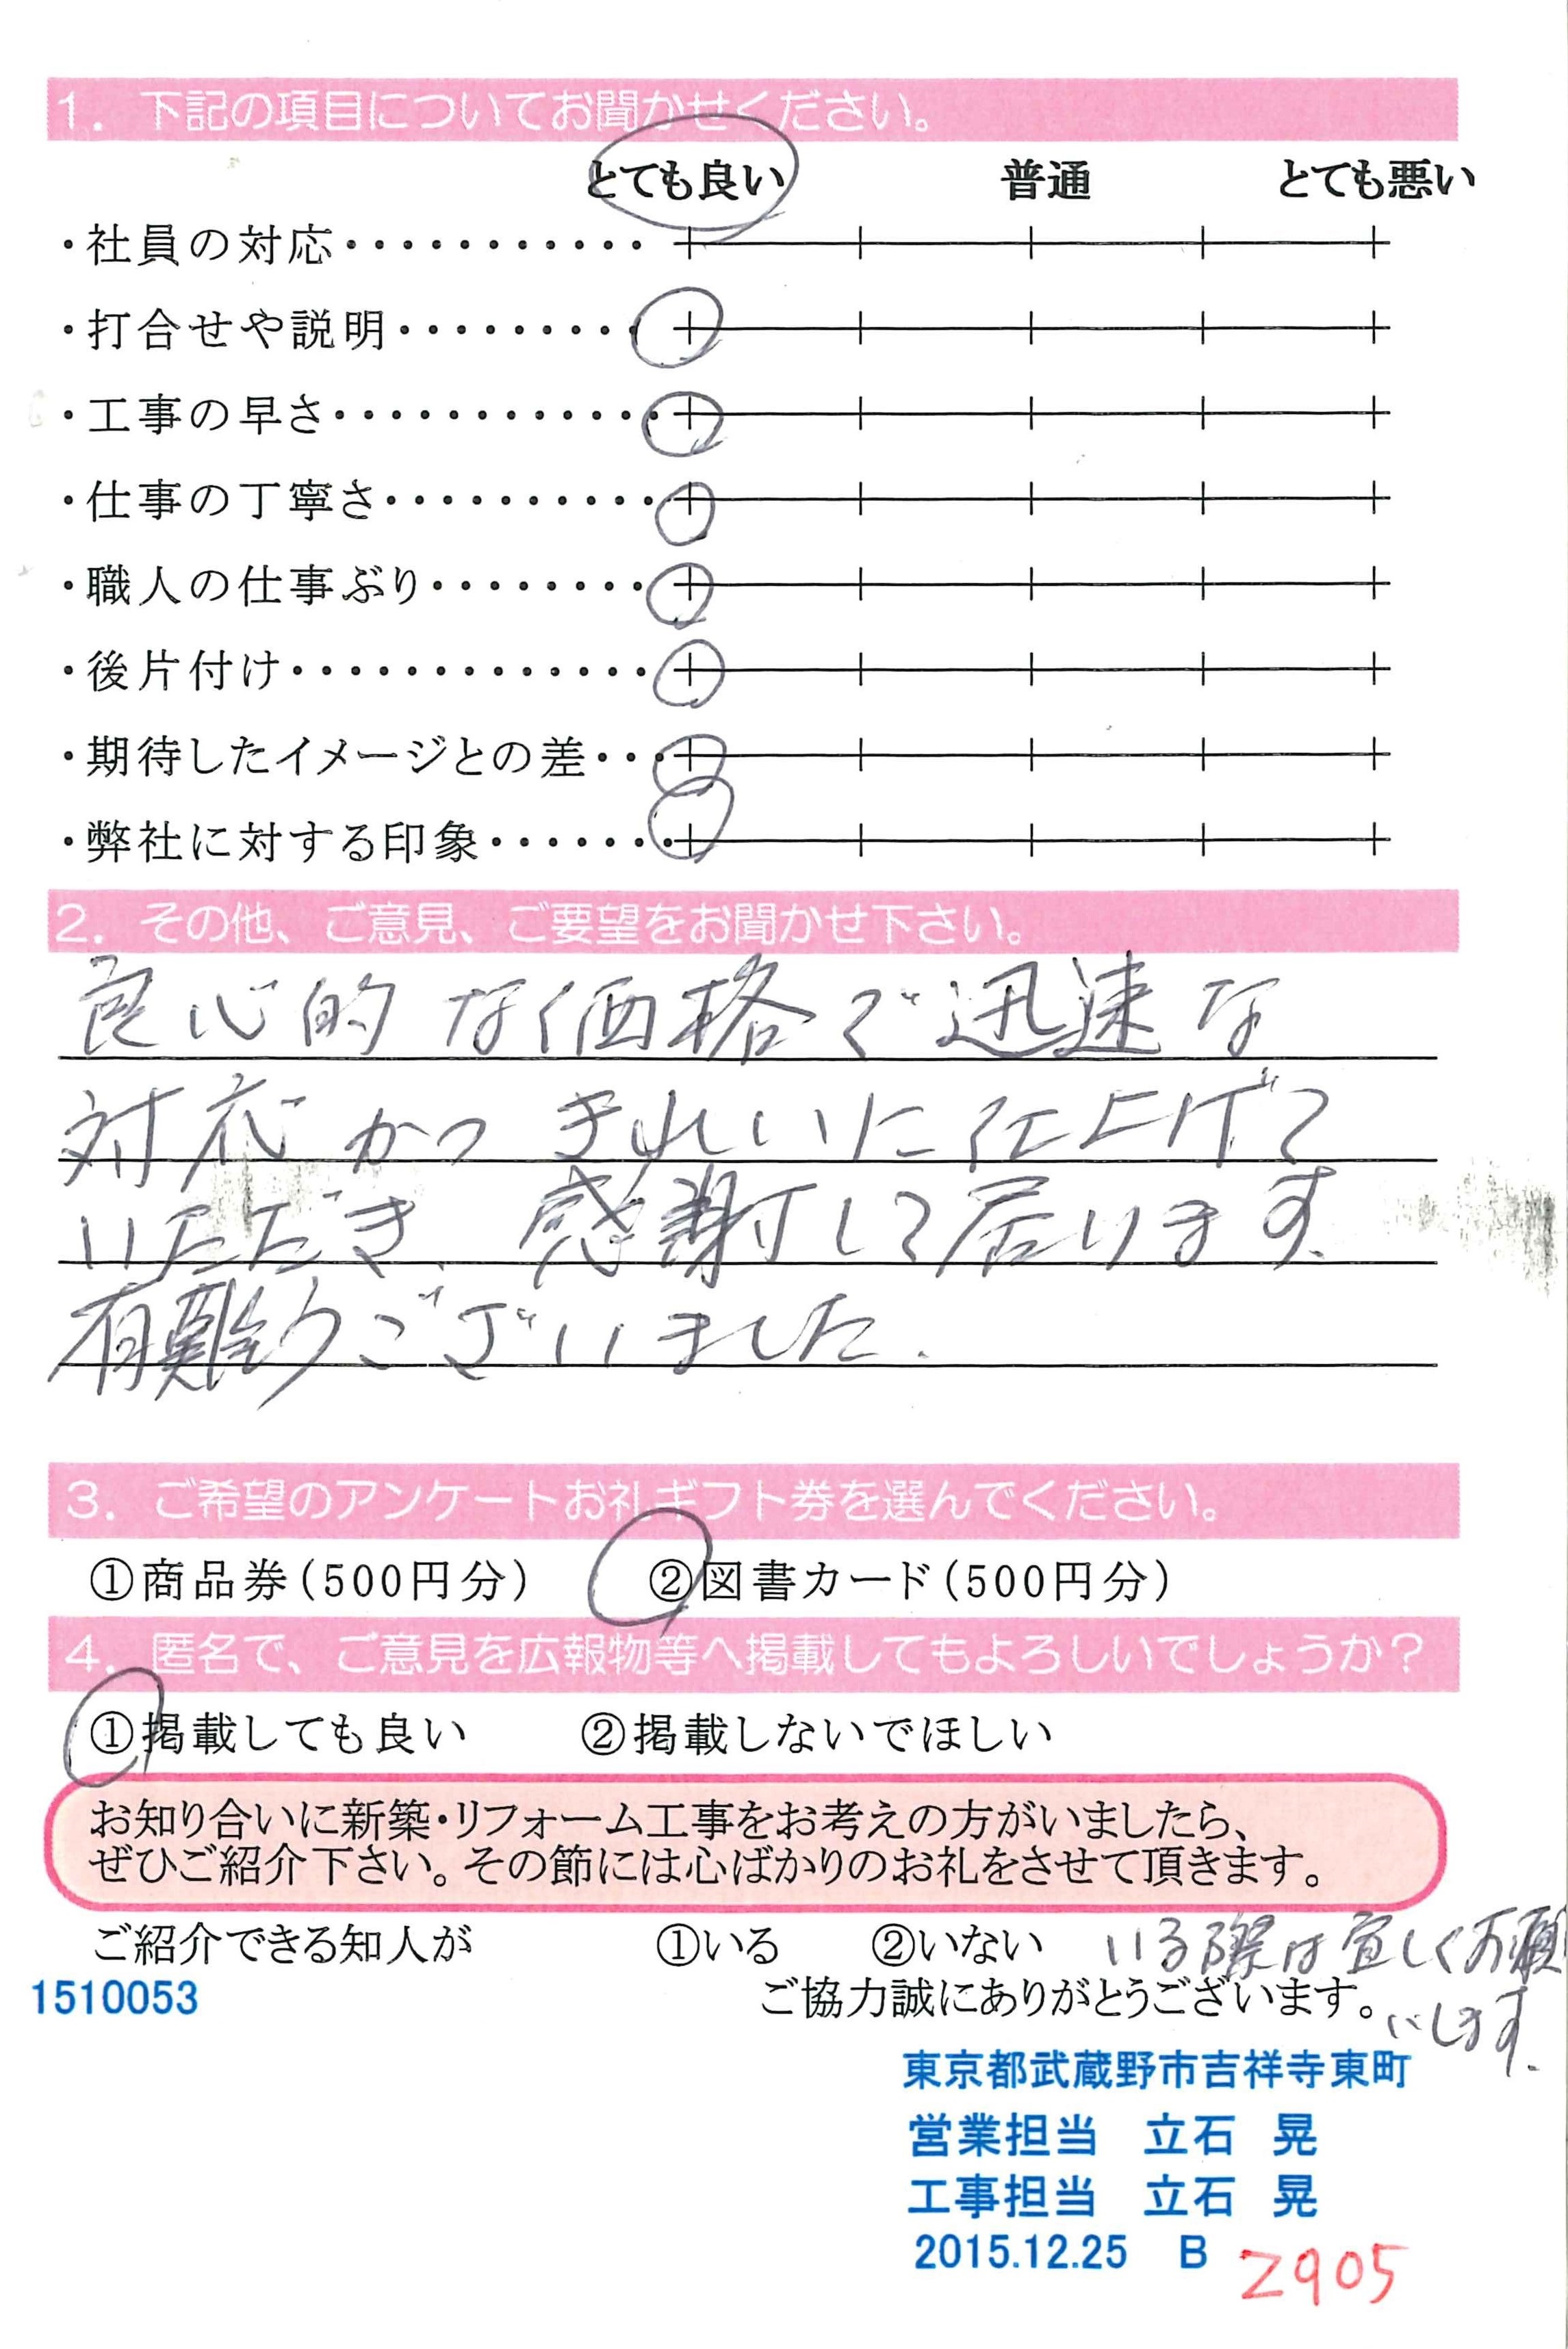 1. 下記の項目についてお聞かせください。
とても良い 普通 とても悪い
・社員の対応・・・・・・・・・・・
・打合せや説明・・・・・・・・・
・工事の早さ・・・・・・・・・・・・
・仕事の丁寧さ・・・・・・・・・・
・職人の仕事ぶり・・・・・・・・
・後片付け・・・・・・・・・・・・・
・期待したイメージとの差・・・
・弊社に対する印象・・・・・・・
2. その他、ご意見、ご要望をお聞かせ下さい。
良心的な価格で迅速な
対応かつきれいに仕上げて
いただき、感謝して居ります。
有難うございました。
3. ご希望のアンケートお礼ギフト券を選んでください。
①商品券(500円分) ②図書カード(500円分)
4. 匿名で、ご意見を広報物等へ掲載してもよろしいでしょうか?
①掲載しても良い ②掲載しないでほしい
お知り合いに新築・リフォーム工事をお考えの方がいましたら、
ぜひご紹介下さい。その節には心ばかりのお礼をさせて頂きます。
ご紹介できる知人が ①いる ②いない いる際は宜しくお願
いします。
1510053 ご協力誠にありがとうございます。
東京都武蔵野市吉祥寺東町
営業担当 立石 晃
工事担当 立石 晃
2015.12.25 B 2905